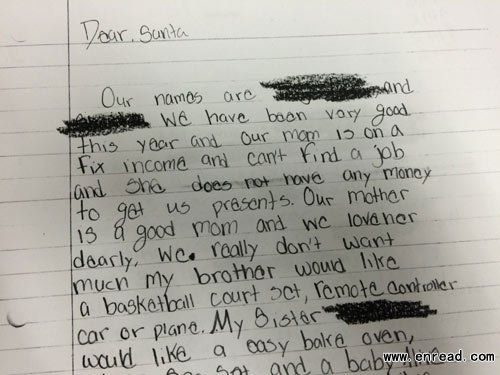 Dear. Santa
Our names are and
We have been very good
this year and our mom is on a
fix income and can't find a job
and she does not have any money
to get us presents. Our mother
is a good mom and we love her
dearly. We really don't want
much my brother would like
a basketball court set, remote controller
car or plane. My Sister
would like a easy bake oven,
set and a baby
www.enread.com